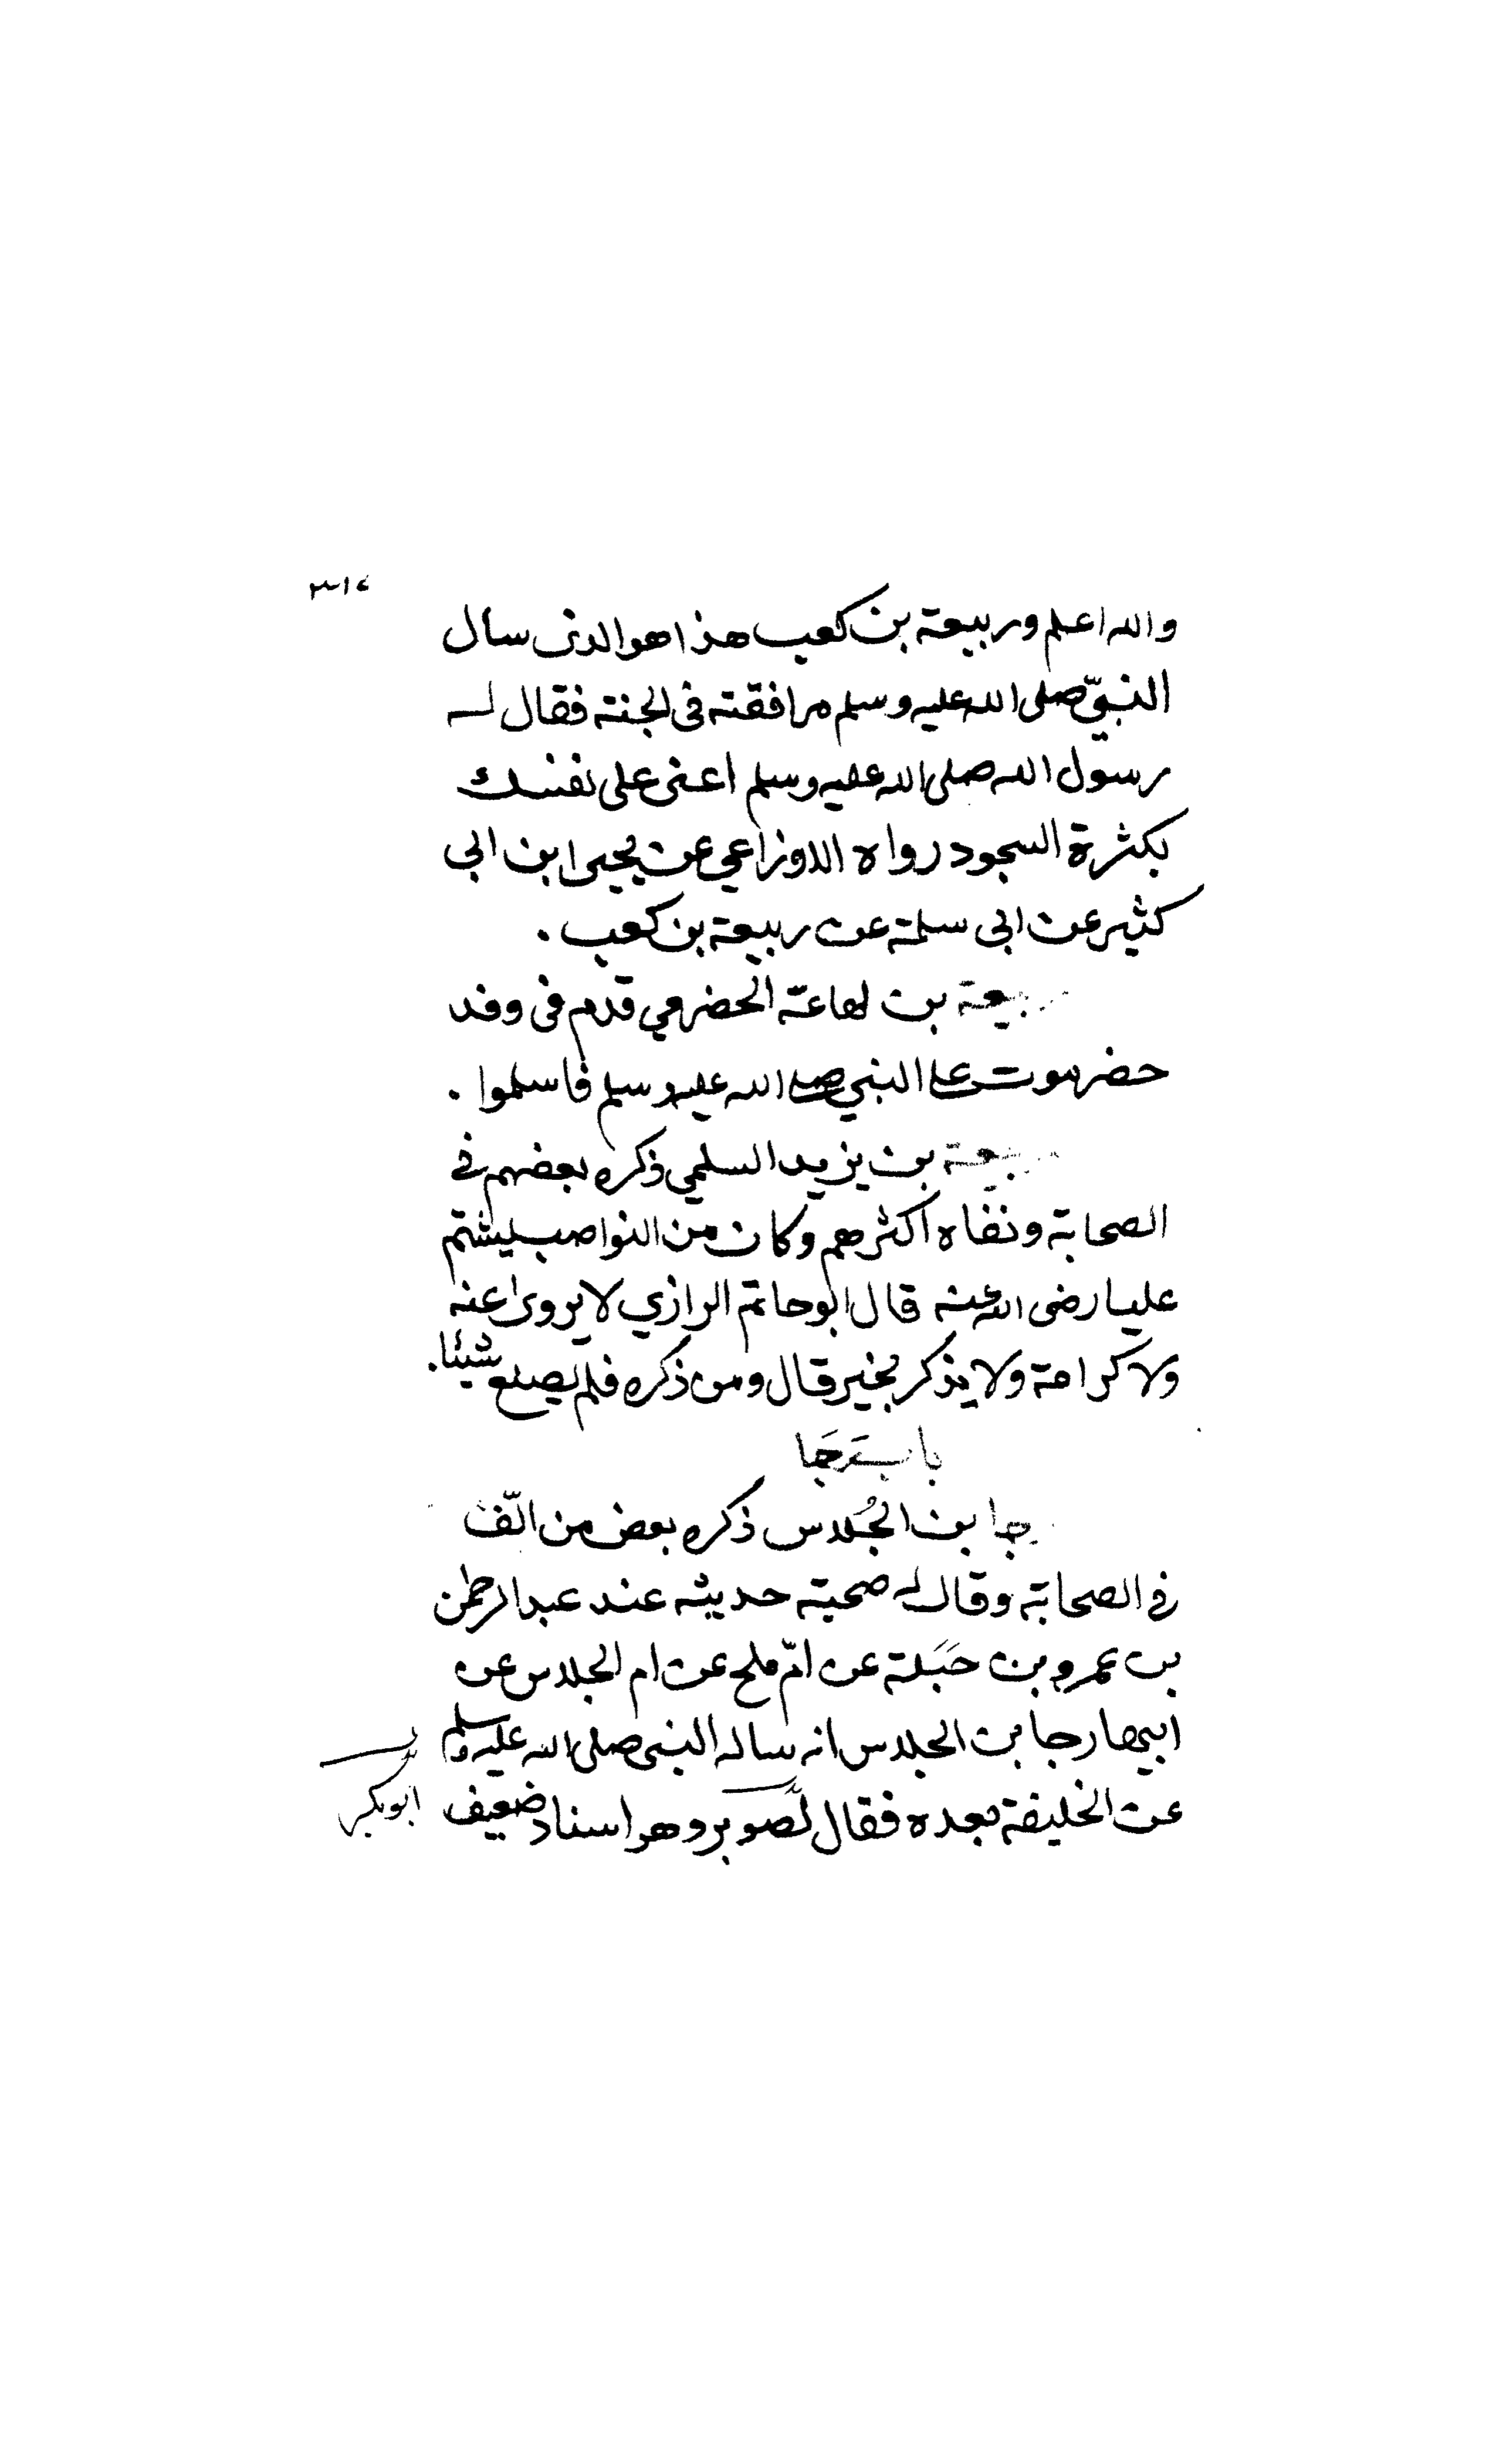 والله اعلم وربيعة بن كعب هذا هو الذى سال
النبيّ صلى الله عليه وسلم مرافقته فى الجنة فقال له
رسول الله صلى الله عليه وسلم اعنى على نفسك
بكثرة السجود رواه الاوزاعي عن يحيى ابن ابي
كثير عن ابي سلمة عن ربيعة بن كعب .
ربيعة بن لهاعة الحضرمي قدم فى وفد
حضرموت على النبي صلى الله عليه وسلم فاسلموا .
ربيعة بن يزيد السلمي ذكره بعضهم في
الصحابة ونفاه اكثرهم وكان من النواصب يشتم
عليا رضى الله عنه قال ابو حاتم الرازي لا يروى عنه
ولا كرامة ولا يذكر بخير قال ومن ذكره فلم يصنع شيئا .
باب رَجَا
رجا بن الجُلاس ذكره بعض من الّف
فى الصحابة وقال له صحبة حديثه عند عبد الرحمن
بن عمرو بن جَبَلة عن امّ ملح عن ام الجلاس عن
ابيها رجا بن الجلاس انه سال النبي صلى الله عليه وسلم
عن الخليفة بعده فقال ابو بكر وهو اسناد ضعيف
ابو بكر